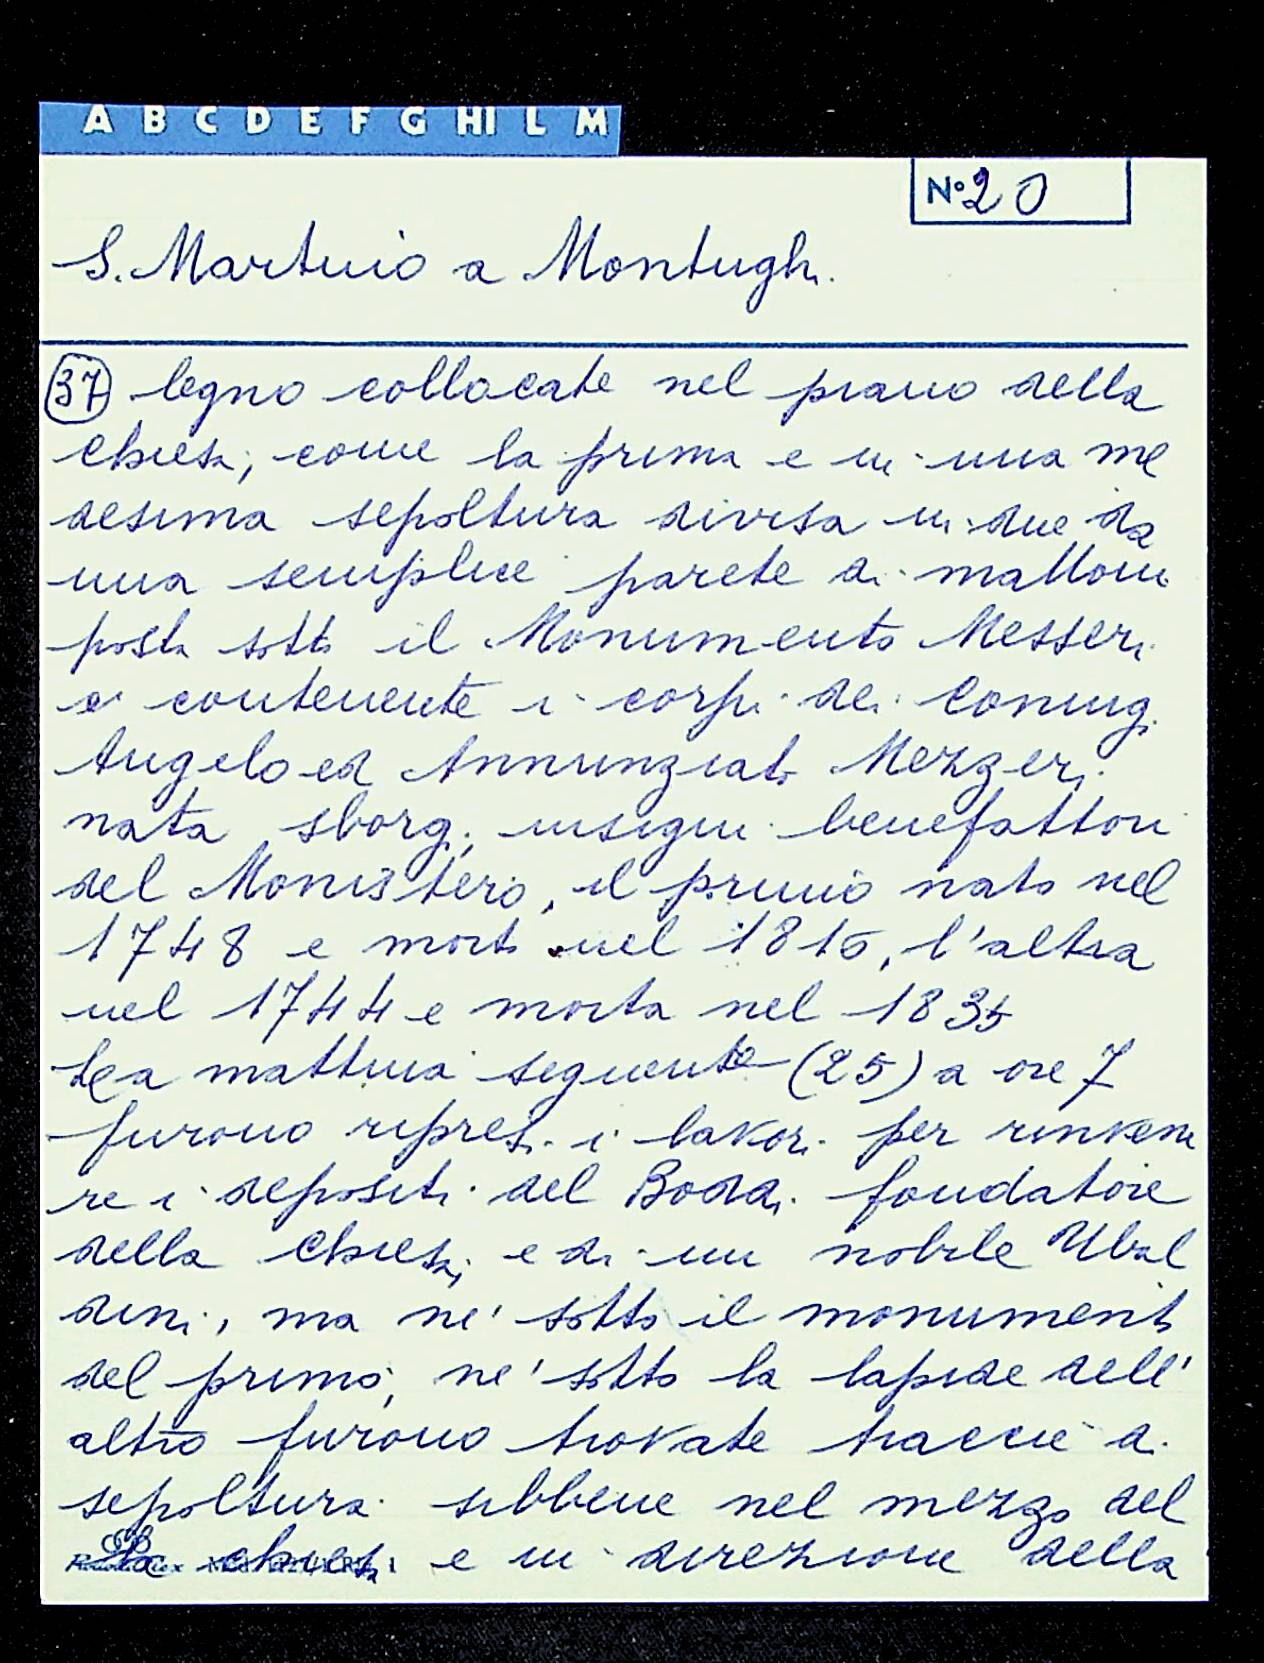 A B C D E F G HI L M
N° 20
S. Martino a Montughi
37 legno collocate nel piano della
chiesa, come la prima e in una me
desima sepoltura divisa in due da
una semplice parete di mattoni
posta sotto il Monumento Messeri
e contenente i corpi dei Coniugi
Angelo ed Annunziata Mezzeri
nata sborgi, insigni benefattori
del Monistero, il primo nato nel
1748 e morto nel 1816, l'altra
nel 1744 e morta nel 1835
La mattina seguente (25) a ore 7
furono ripresi i lavori per rinveni
re i depositi del Boddi fondatore
della Chiesa, e di un nobile Ubal
dini, ma ne' sotto il monumento
del primo, ne' sotto la lapide dell'
altro furono trovate traccie di
sepoltura sebbene nel mezzo del
la chiesa e in direzione della